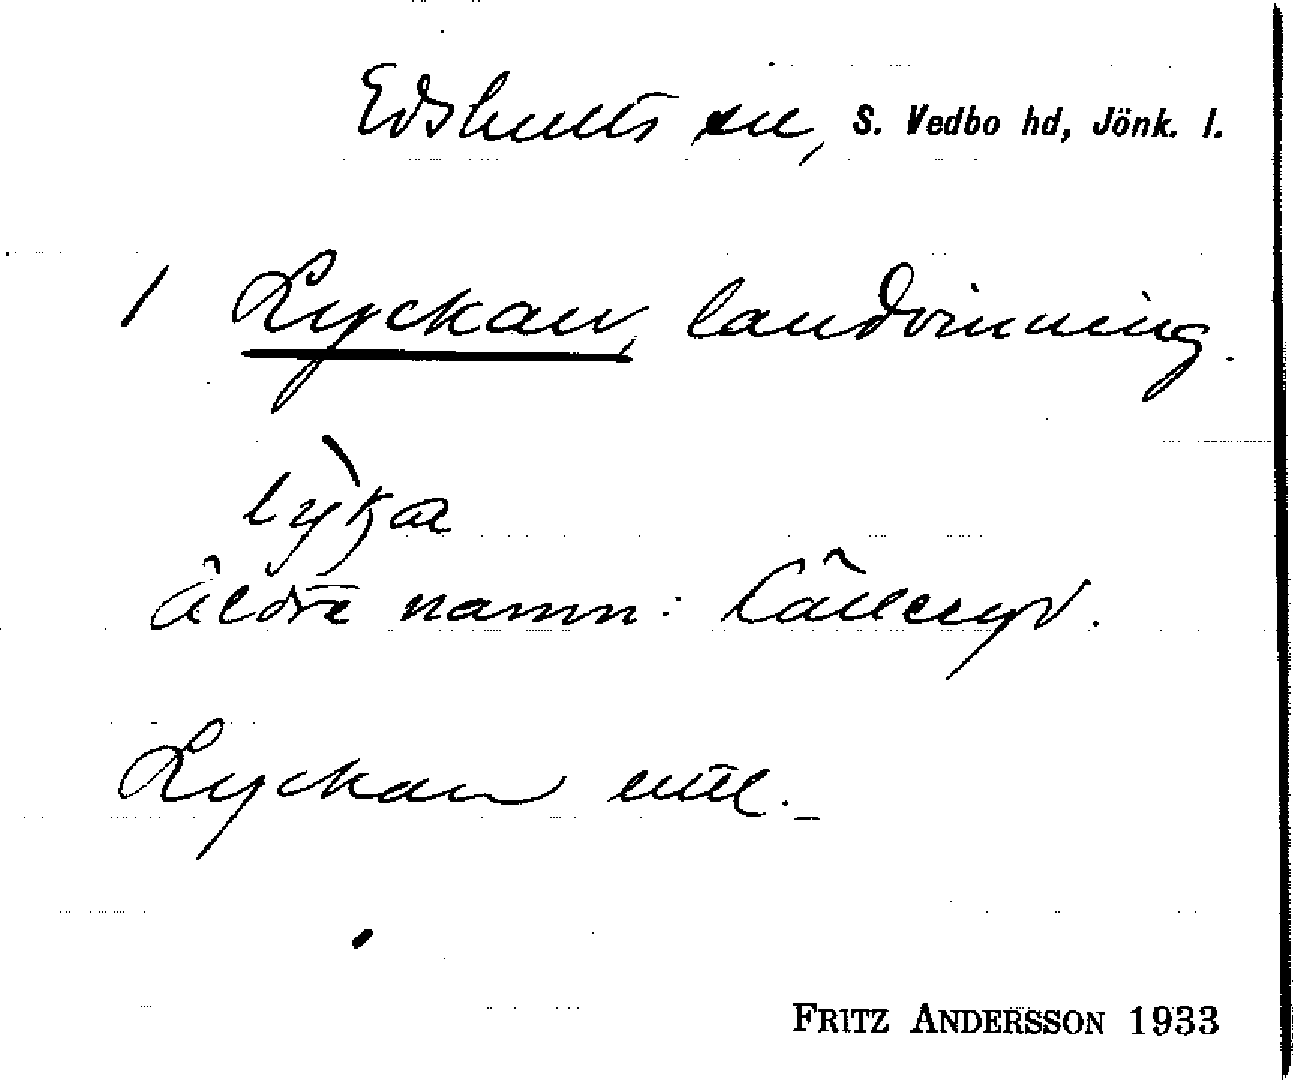 Edshults sn, S. Vedbo hd, Jönk. l.
1 Lyckan, landvinning.
lỳka
äldre namn:
Lyckan
FRITZ ANDERSSON 1933